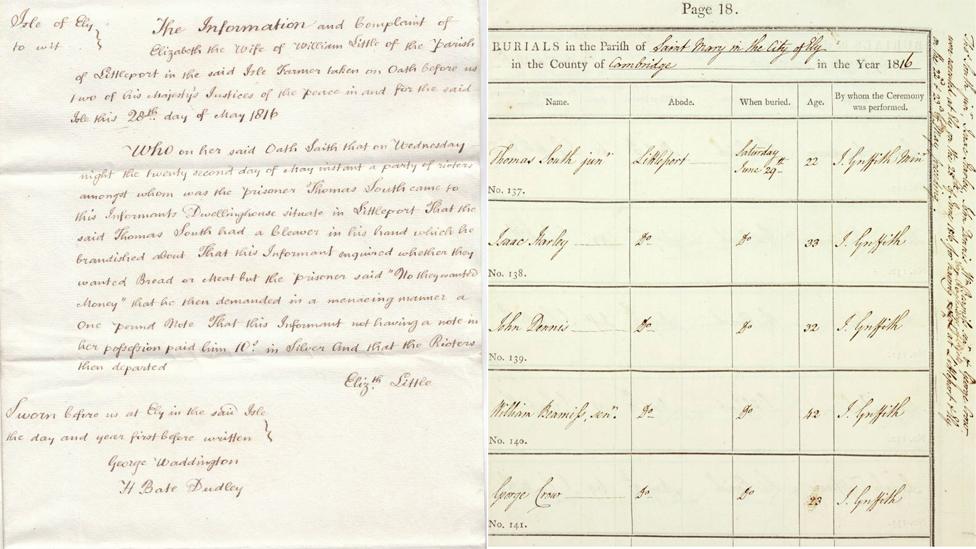 Isle of Ely
to wit
The Information and Complaint of
Elizabeth the Wife of William Little of the Parish
of Littleport in the said Isle Farmer taken on Oath before us
two of his Majesty's Justices of the peace in and for the said
Isle this 28th day of May 1816
Who on her said Oath Saith that on Wednesday
night the twenty second day of May instant a party of rioters
amongst whom was the prisoner Thomas South came to
this Informants Dwellinghouse situate in Littleport That the
said Thomas South had a Cleaver in his hand which he
brandished about That this Informant enquired whether they
wanted Bread or Meat but the prisoner said "No they wanted
Money" that he then demanded in a menacing manner a
One pound Note That this Informant not having a note in
her possession paid him 10s. in Silver And that the Rioters
then departed
Elizth Little
Sworn before us at Ely in the said Isle
the day and year first before written
George Waddington
H Bate Dudley
Page 18.
BURIALS in the Parish of Saint Mary in the City of Ely
in the County of Cambridge in the Year 1816
Name. Abode. When buried. Age. By whom the Ceremony was performed.
Thomas South junr Littleport Saturday June 29th 22 J. Griffith Minr
No. 137.
Isaac Harley Do Do 33 J. Griffith
No. 138.
John Dennis Do Do 32 J. Griffith
No. 139.
William Beamiss, senr. Do Do 42 J. Griffith
No. 140.
George Crow Do Do 23 J. Griffith
No. 141.